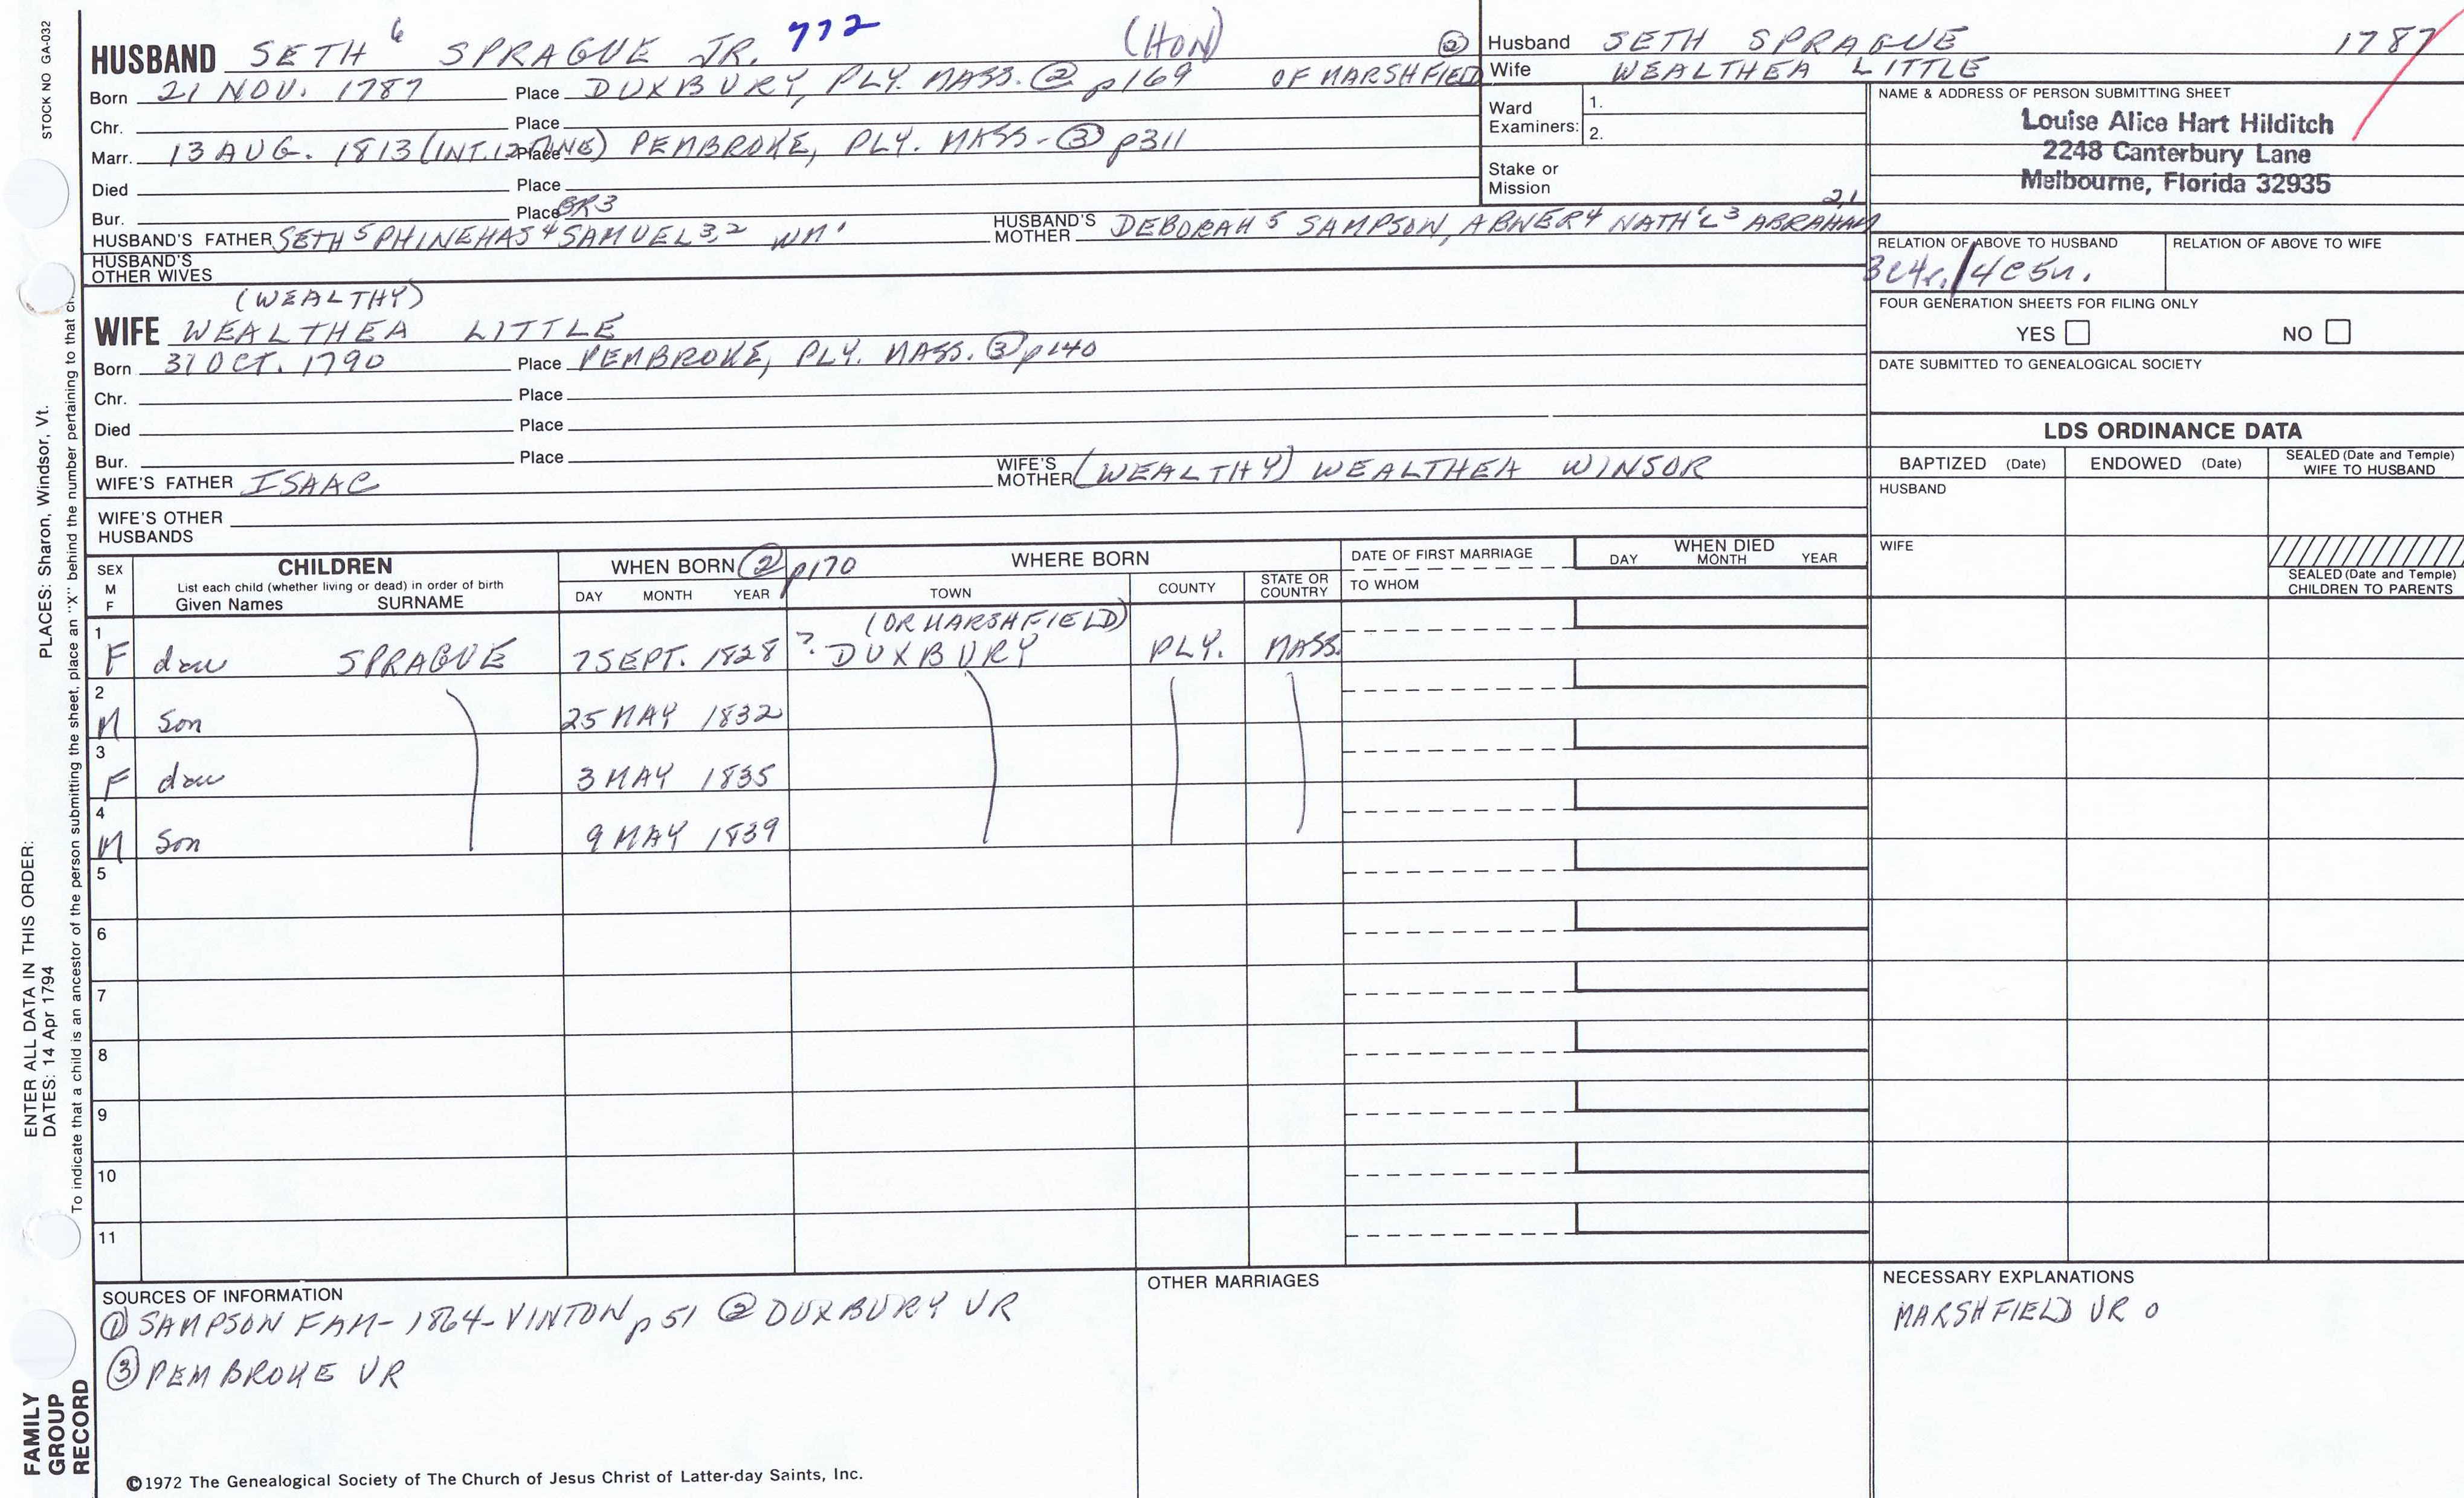 STOCK NO GA-032
HUSBAND SETH 6 SPRAGUE JR. 772 (HON) ②
Born 21 NOV. 1787 Place DUXBURY, PLY. MASS. ② p169 OF MARSHFIELD
Chr. Place
Marr. 13 AUG. 1813 (INT. 12 JUNE) Place PEMBROKE, PLY. MASS - ③ p311
Died Place
Bur. Place GR3
HUSBAND'S FATHER SETH 5 PHINEHAS 4 SAMUEL 3,2 WM 1 HUSBAND'S MOTHER DEBORAH 5 SAMPSON, ABNER 4 NATH'L 3 ABRAHAM 2,1
HUSBAND'S OTHER WIVES
(WEALTHY)
WIFE WEALTHEA LITTLE
Born 31 OCT. 1790 Place PEMBROKE, PLY. MASS. ③ p140
Chr. Place
Died Place
Bur. Place
WIFE'S FATHER ISAAC WIFE'S MOTHER (WEALTHY) WEALTHEA WINSOR
WIFE'S OTHER HUSBANDS
Husband SETH SPRAGUE 1787
Wife WEALTHEA LITTLE
Ward Examiners: 1.
2.
Stake or Mission
NAME & ADDRESS OF PERSON SUBMITTING SHEET
Louise Alice Hart Hilditch
2248 Canterbury Lane
Melbourne, Florida 32935
RELATION OF ABOVE TO HUSBAND RELATION OF ABOVE TO WIFE
3c4r./4c5r.
FOUR GENERATION SHEETS FOR FILING ONLY
YES NO
DATE SUBMITTED TO GENEALOGICAL SOCIETY
LDS ORDINANCE DATA
BAPTIZED (Date) ENDOWED (Date) SEALED (Date and Temple) WIFE TO HUSBAND
HUSBAND
WIFE
SEALED (Date and Temple) CHILDREN TO PARENTS
SEX M F CHILDREN WHEN BORN ② p170 WHERE BORN DATE OF FIRST MARRIAGE WHEN DIED
List each child (whether living or dead) in order of birth
Given Names SURNAME DAY MONTH YEAR TOWN COUNTY STATE OR COUNTRY TO WHOM DAY MONTH YEAR
(OR MARSHFIELD)
1 F dau SPRAGUE 7 SEPT. 1828 ? DUXBURY PLY. MASS.
2 M Son 25 MAY 1832
3 F dau 3 MAY 1835
4 M Son 9 MAY 1839
5
6
7
8
9
10
11
SOURCES OF INFORMATION
① SAMPSON FAM - 1864 - VINTON p51 ② DUXBURY VR
③ PEMBROKE VR
OTHER MARRIAGES
NECESSARY EXPLANATIONS
MARSHFIELD VR 0
©1972 The Genealogical Society of The Church of Jesus Christ of Latter-day Saints, Inc.
FAMILY
GROUP
RECORD
ENTER ALL DATA IN THIS ORDER:
DATES: 14 Apr 1794 PLACES: Sharon, Windsor, Vt.
To indicate that a child is an ancestor of the person submitting the sheet, place an "X" behind the number pertaining to that